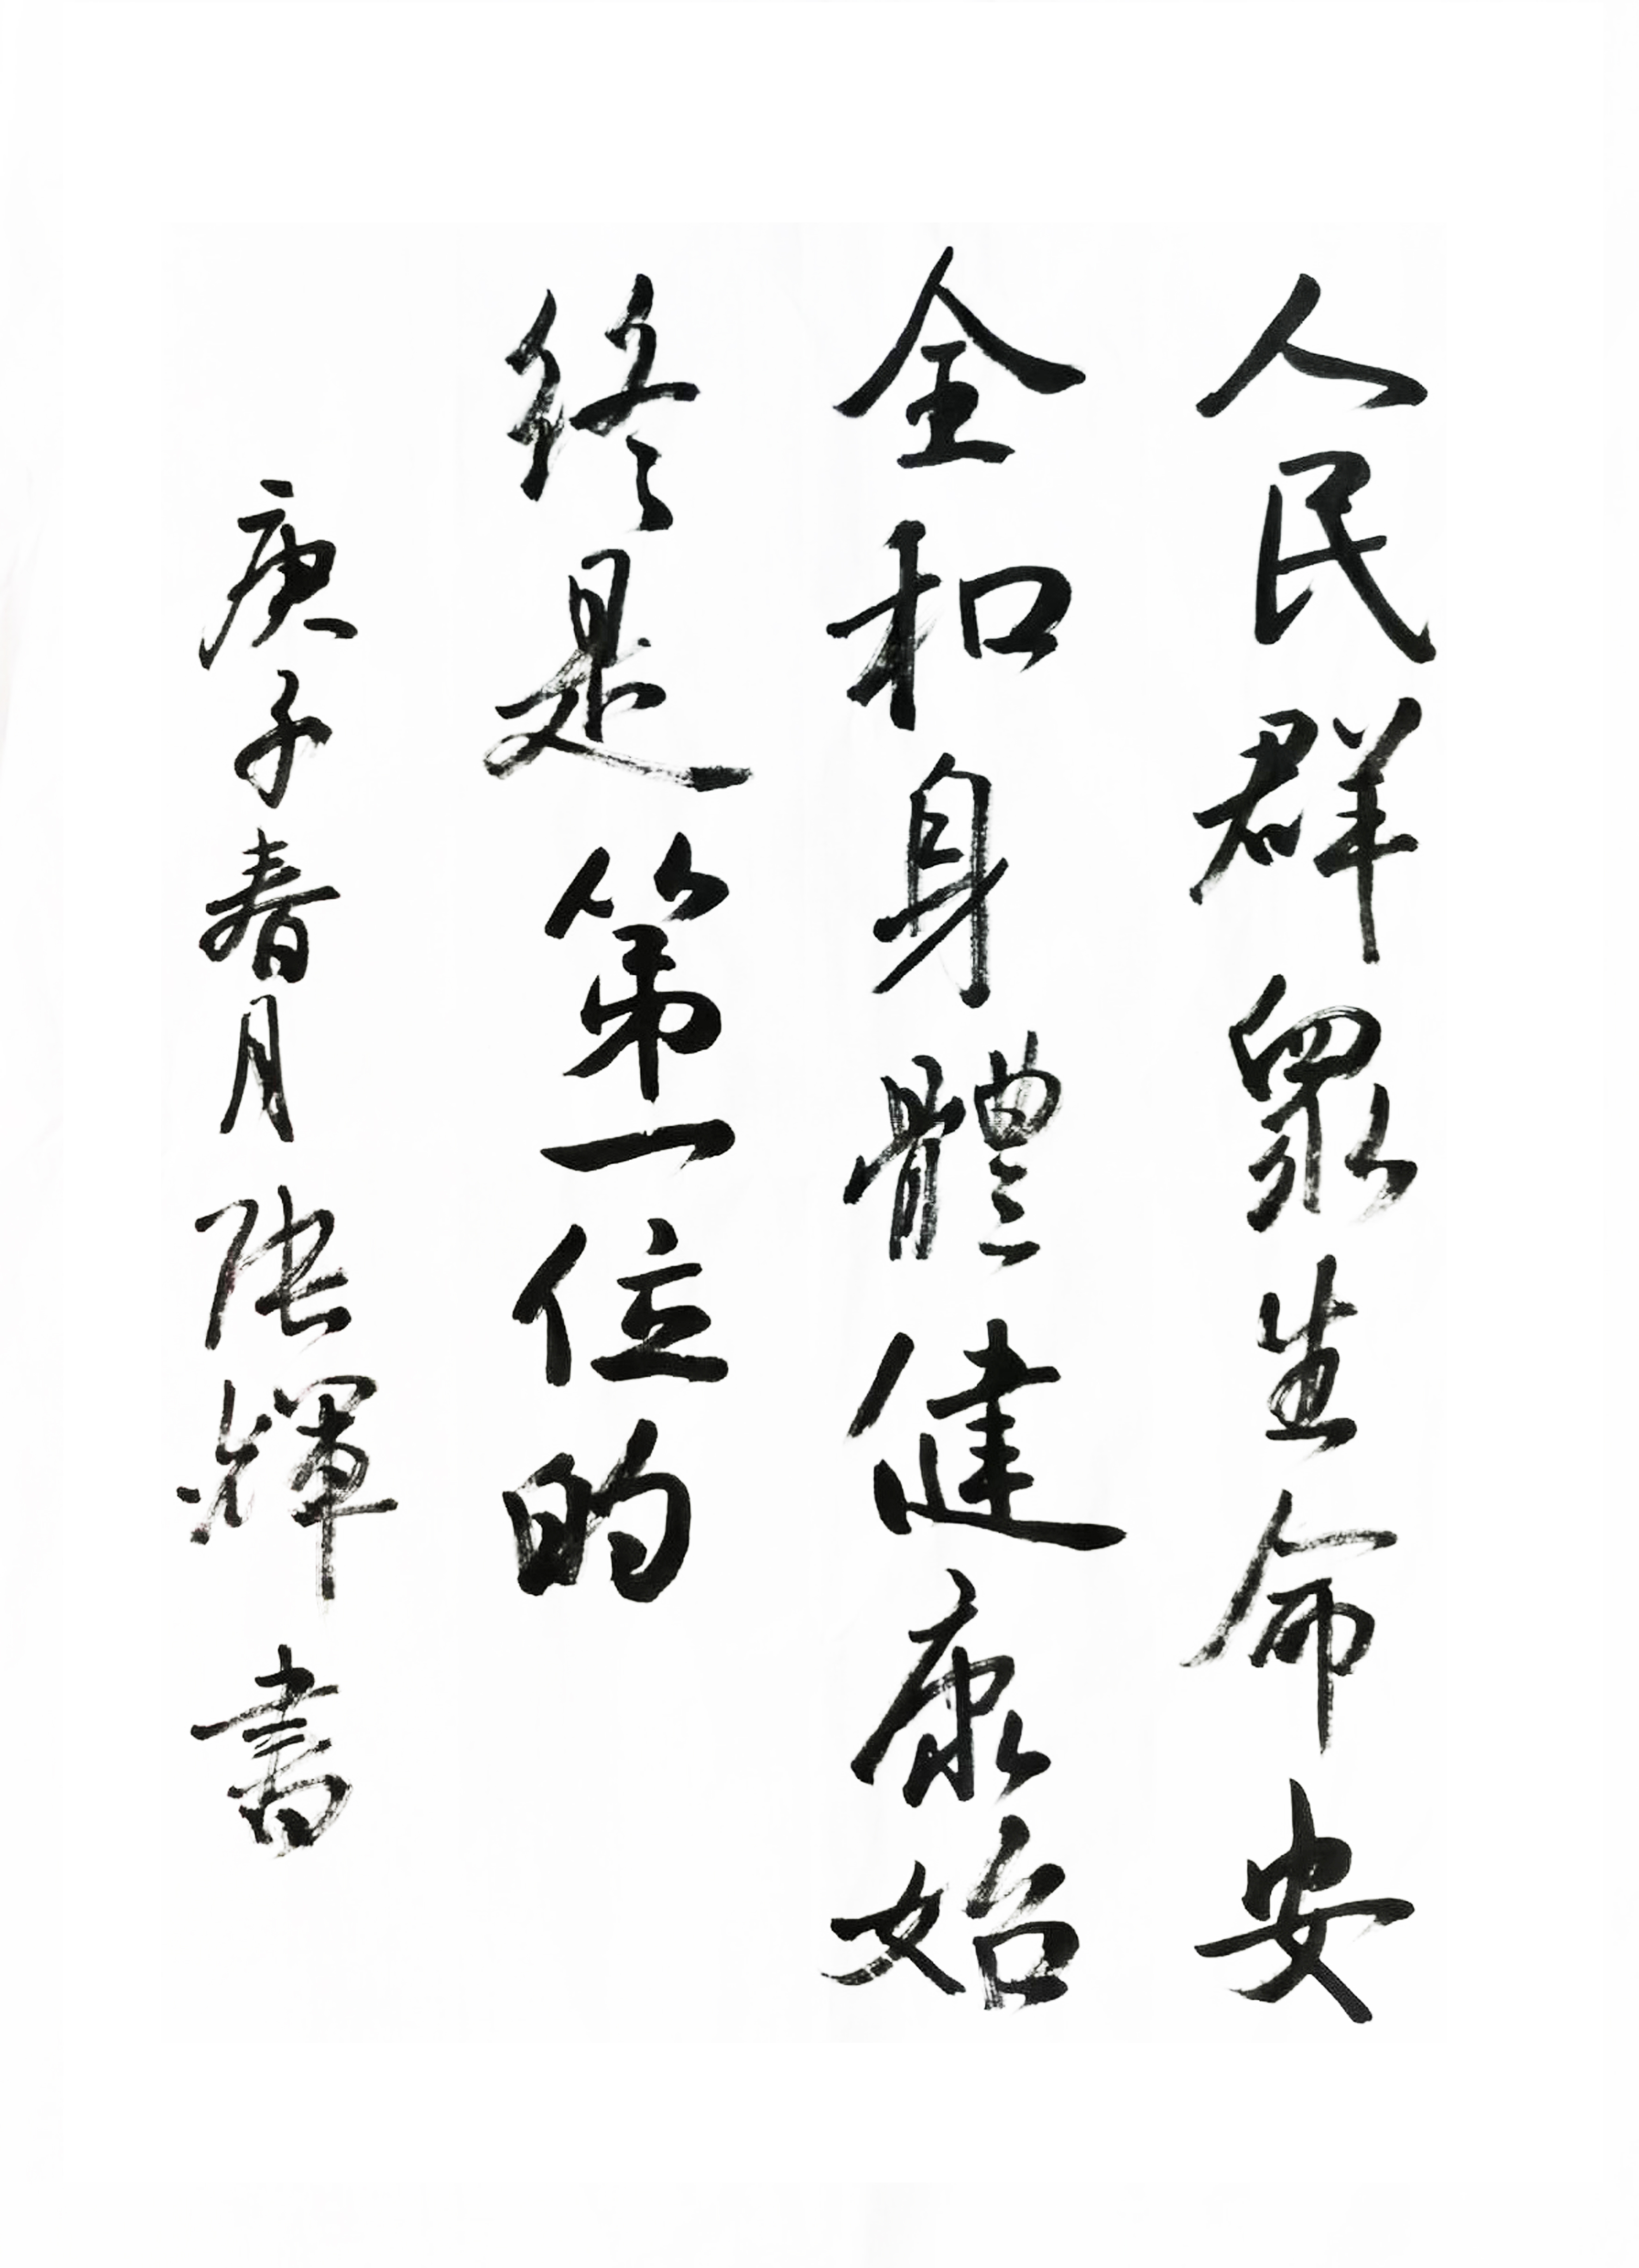 人民群眾生命安
全和身體健康始
終是第一位的
庚子春月張輝書